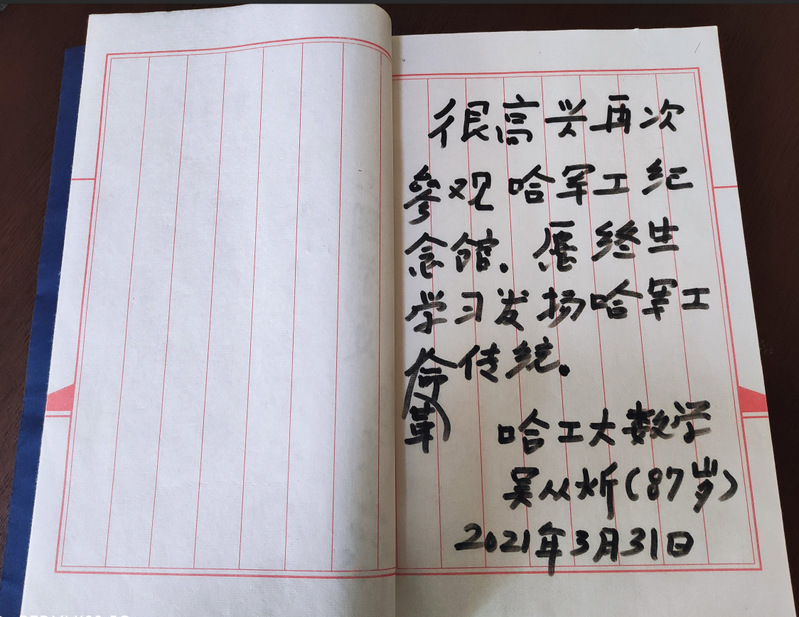 很高兴再次
參观哈军工纪
念馆. 愿终生
学习发扬哈军工
命传统。
革
哈工大数学
吴从炘(87岁)
2021年3月31日